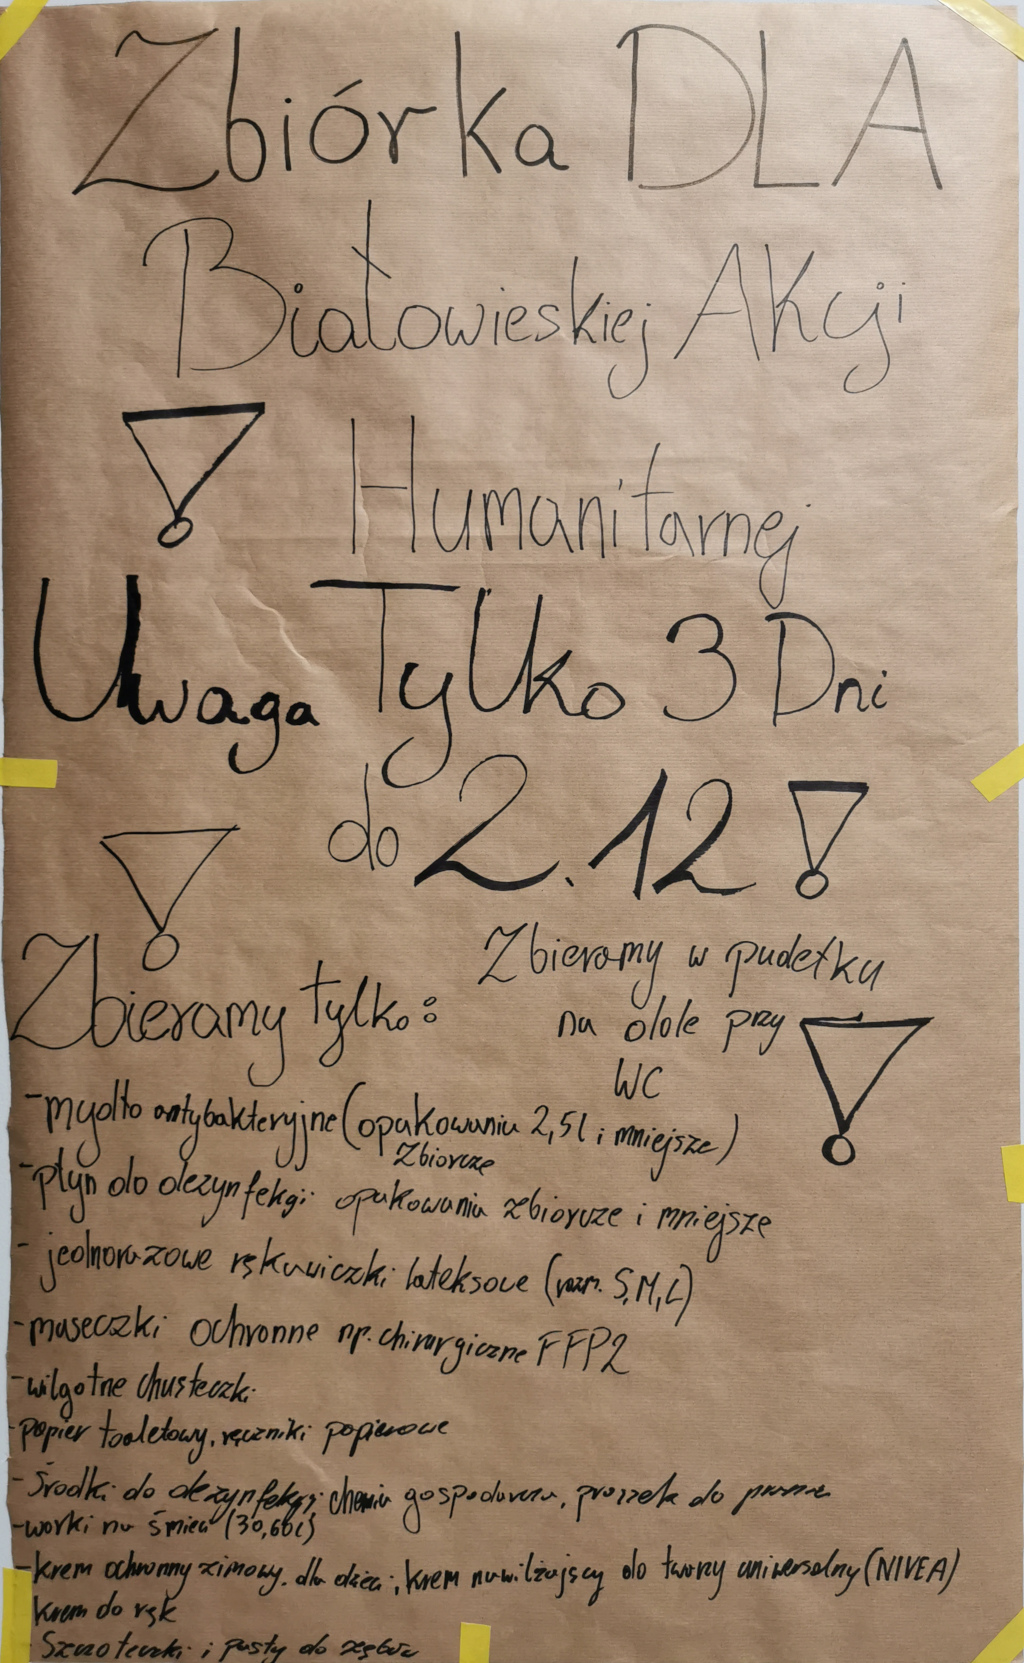 Zbiórka DLA
Białowieskiej AKcji
Humanitarnej
Uwaga Tylko 3 Dni
do 2.12
Zbieramy w pudełku
na dole przy
WC
Zbieramy tylko:
-mydło antybakteryjne (opakowania 2,5l i mniejsze)
zbiorcze
-płyn do dezynfekcji opakowania zbiorcze i mniejsze
-jednorazowe rękawiczki lateksowe (rozm. S,M,L)
-maseczki ochronne np. chirurgiczne FFP2
-wilgotne chusteczki
-papier toaletowy, ręczniki papierowe
-środki do dezynfekcji chemia gospodarcza, proszek do prania
-worki na śmieci (30,60l)
-krem ochronny zimowy. dla dzieci, krem nawilżający do twarzy uniwersalny (NIVEA)
krem do rąk
Szczoteczki i pasty do zębów